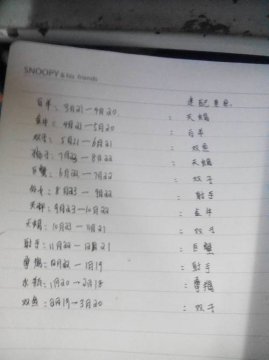 SNOOPY & his friends
速配星座
白羊：3月21—4月20 ：天蝎
金牛：4月21—5月20 ：白羊
双子：5月21—6月21 ：双鱼
狮子：7月23—8月22 ：天蝎
巨蟹：6月22—7月22 ：双子
处女：8月23—9月22 ：射手
天秤：9月23—10月22 ：金牛
天蝎：10月23—11月21 ：双子
射手：11月22—12月21 ：巨蟹
摩羯：12月22—1月19 ：射手
水瓶：1月20—2月18 ：摩羯
双鱼：2月19—3月20 ：双子